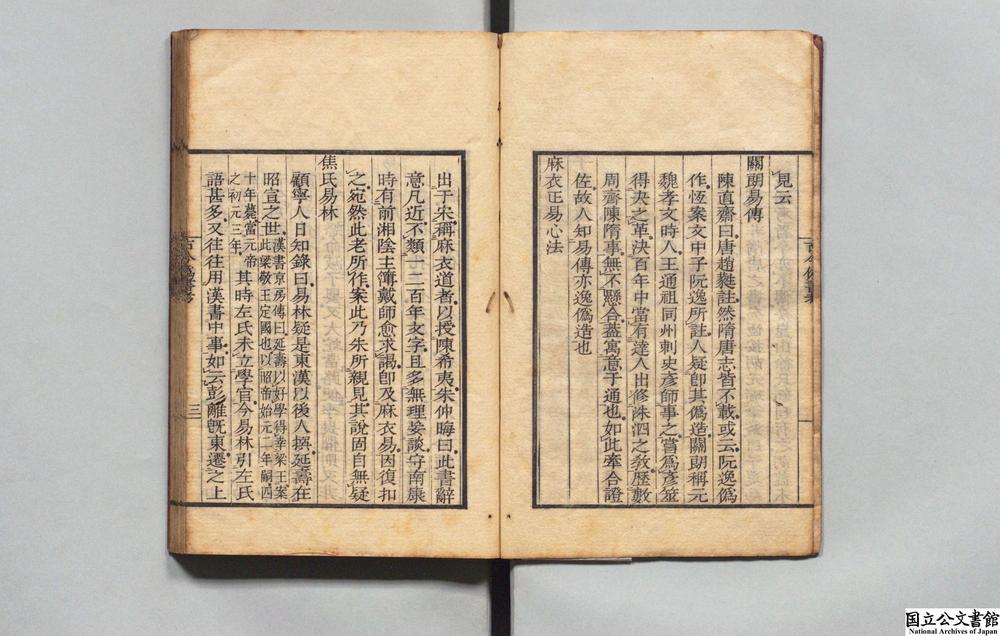 見云
關朗易傳
陳直齋曰唐趙蕤註然隋唐志皆不載或云阮逸僞
作恆案文中子阮逸所註人疑卽其僞造關朗稱元
魏孝文時人王通祖同州刺史彥師事之嘗爲彥筮
得夬之革決百年中當有達人出修洙泗之敎歷數
周齊陳隋事無不懸合蓋寓意于通也如此牽合證
佐故人知易傳亦逸僞造也
麻衣正易心法
出于宋稱麻衣道者以授陳希夷朱仲晦曰此書辭
意凡近不類一二百年文字且多無理妄談守南康
時有前湘陰主簿戴師愈求謁卽及麻衣易因復扣
之宛然此老所作案此乃朱所親見其說固自無疑
焦氏易林
顧寧人日知錄曰易林疑是東漢以後人撰延壽在
昭宣之世漢書京房傳曰延壽以好學得幸梁王案
此梁敬王定國也以昭帝始元二年嗣四
十年薨當元帝
之初元三年其時左氏未立學官今易林引左氏
語甚多又往往用漢書中事如云彭離旣東遷之上
古今僞書考
三
国立公文書館
National Archives of Japan